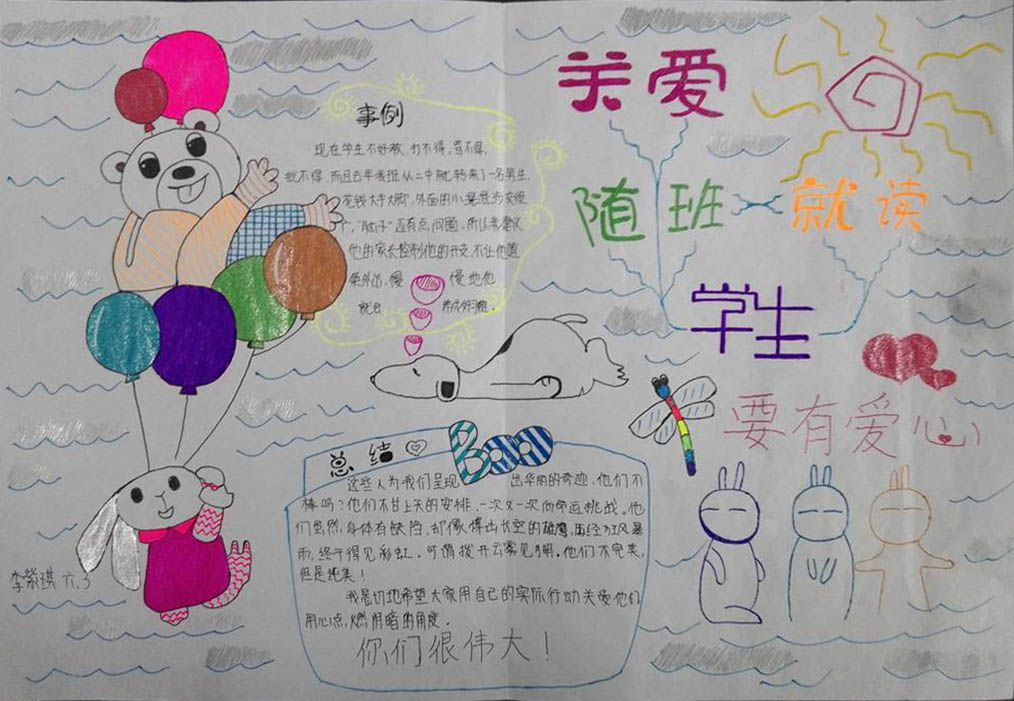 关爱
随班就读
学生
要有爱心
事例
现在学生不好教，打不得，骂不得，
批不得，而且去年我班从二中就转来了一名男生，
花钱大手大脚，外面的小
个，“肚子”还有点问题，所以我建议
他的家长控制他的开支，不让他随
意外出，慢慢地他
就会养成好习惯。
总结
Boo
这些人为我们呈现出华丽的奇迹，他们不
棒吗？他们不甘上天的安排，一次又一次向命运挑战。他
们虽然，身体有缺陷，却像搏击长空的雄鹰，历经狂风暴
雨，终于得见彩虹，可谓拨开云雾见明，他们不完美，
但是纯美！
我急切地希望大家用自己的实际行动关爱他们
用心点，燃阴暗的角度。
你们很伟大！
李紫琪 六.3